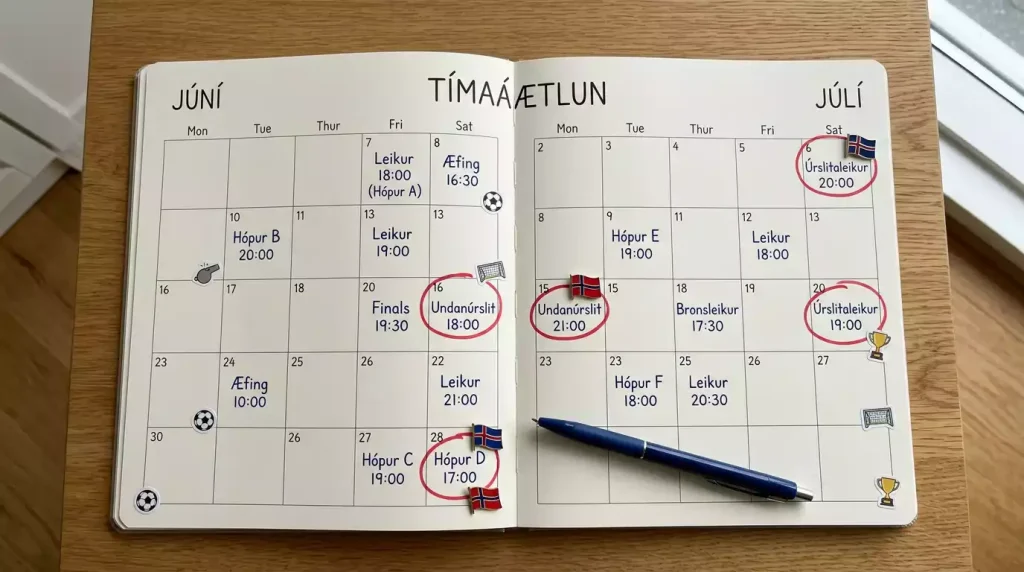 JÚNÍ
TÍMAÁÆTLUN
JÚLÍ
Mon Tue Thur Fri Sat
7 8
Leikur
18:00
(Hópur A)
Æfing
16:30
10 11 13 13
Hópur B
20:00
Leikur
19:00
16 17 18 20 16
Finals
19:30
Undanúrslit
18:00
23 24 25 26 22
Æfing
10:00
Leikur
21:00
30 26 27 28
Hópur C
19:00
Hópur D
17:00
Mon Tue Thur Fri Sat
2 3 4 5 6
Úrslitaleikur
20:00
8 9 11 12 13
Hópur E
19:00
Leikur
18:00
15 15 18 19 20
Undanúrslit
21:00
Bronsleikur
17:30
Úrslitaleikur
19:00
23 23 25 26 27
Hópur F
18:00
Leikur
20:30